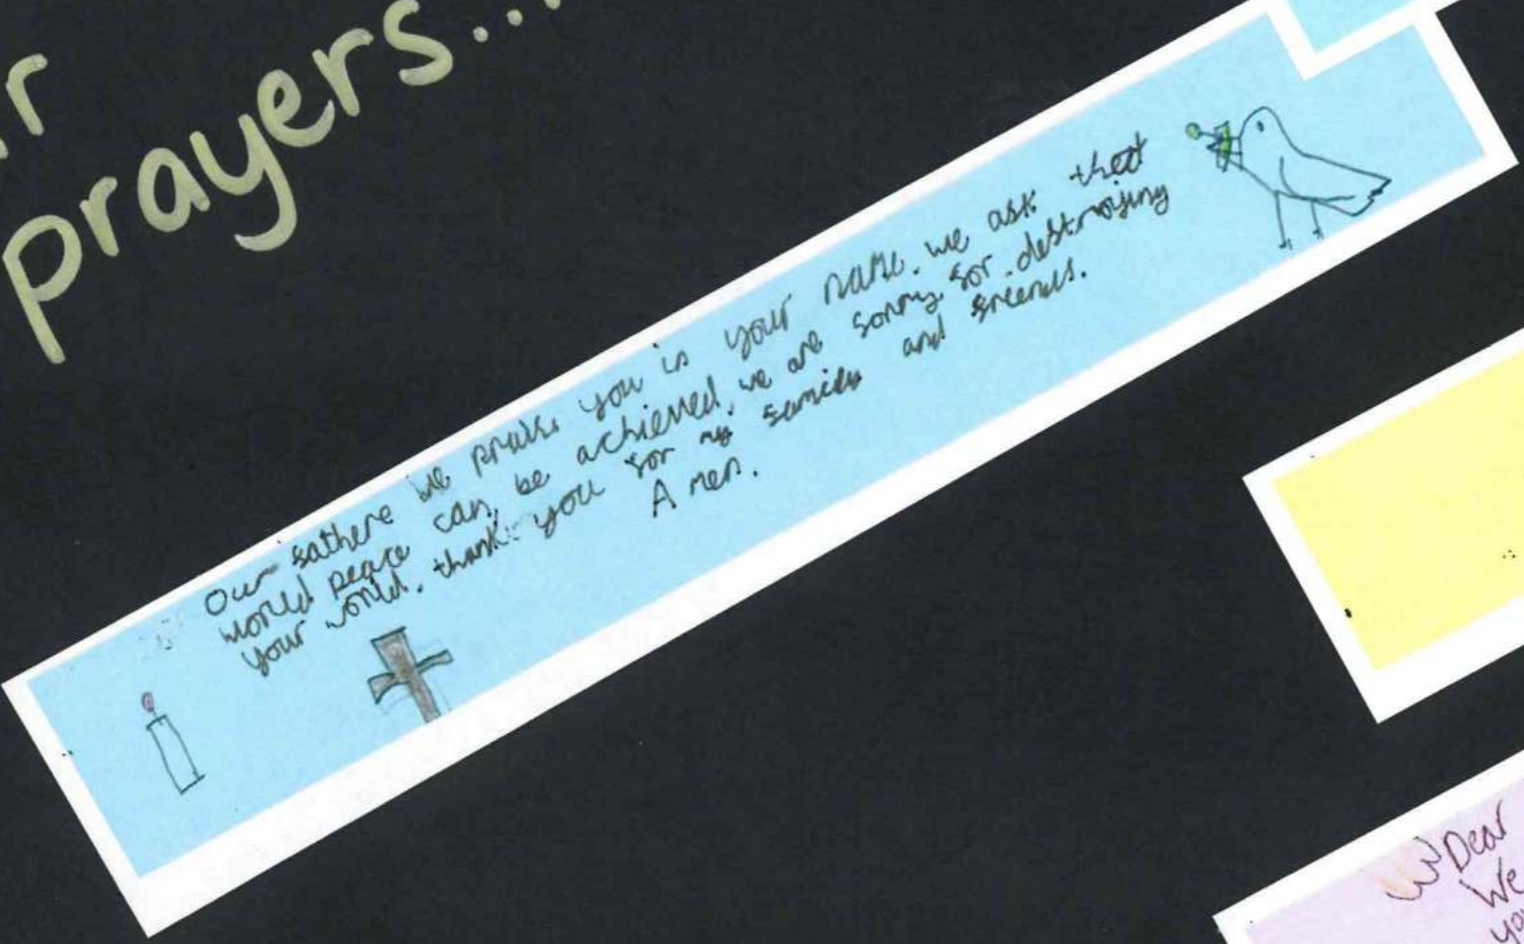 prayers...
Our fathere we praise you is your name. we ask that
world peace can be achieved. we are sorry for destroying
your world. thank you for my familey and freends.
Amen.
Dear
We
you